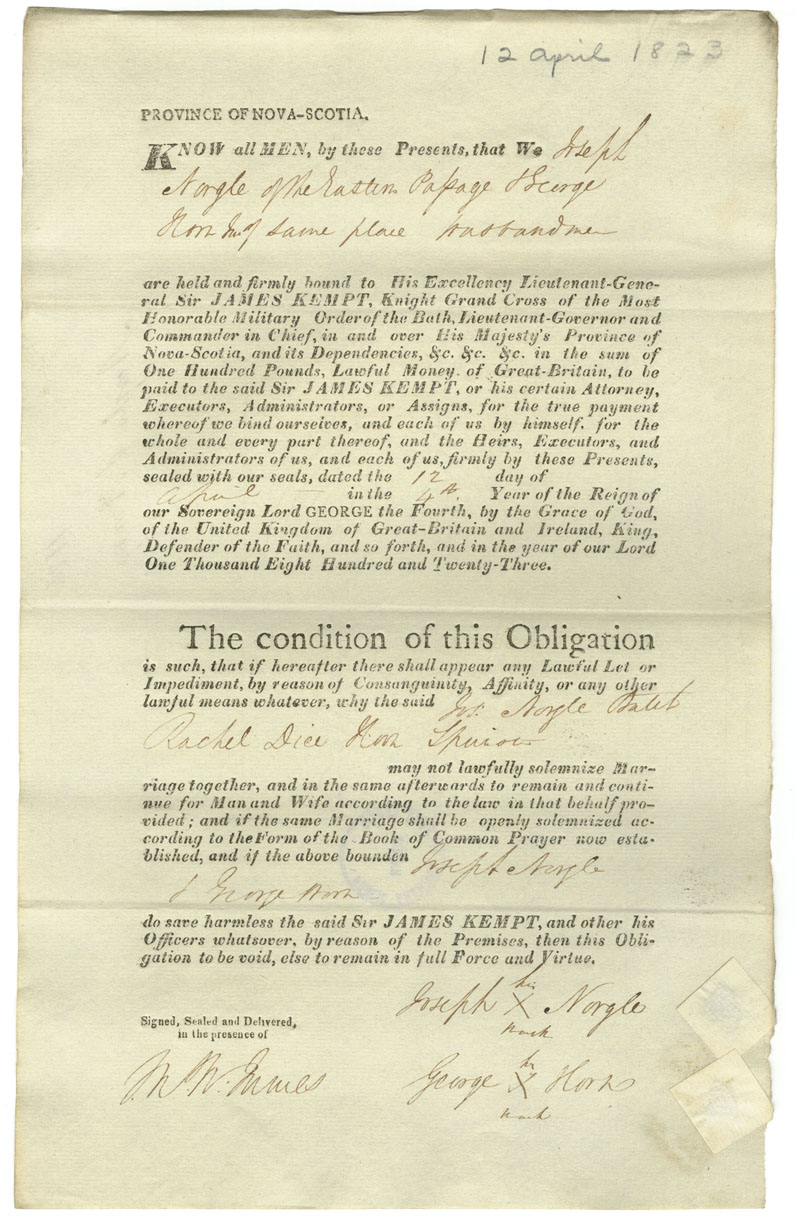 12 April 1823
PROVINCE OF NOVA-SCOTIA.
KNOW all MEN, by these Presents, that We Joseph
Norgle of the Eastern Passage & George
Horn of same place husbandmen
are held and firmly bound to His Excellency Lieutenant-Gene-
ral Sir JAMES KEMPT, Knight Grand Cross of the Most
Honorable Military Order of the Bath, Lieutenant-Governor and
Commander in Chief, in and over His Majesty's Province of
Nova-Scotia, and its Dependencies, &c. &c. &c. in the sum of
One Hundred Pounds, Lawful Money of Great-Britain, to be
paid to the said Sir JAMES KEMPT, or his certain Attorney,
Executors, Administrators, or Assigns, for the true payment
whereof we bind ourselves, and each of us by himself, for the
whole and every part thereof, and the Heirs, Executors, and
Administrators of us, and each of us, firmly by these Presents,
sealed with our seals, dated the 12 day of
April in the 4th Year of the Reign of
our Sovereign Lord GEORGE the Fourth, by the Grace of God,
of the United Kingdom of Great-Britain and Ireland, King,
Defender of the Faith, and so forth, and in the year of our Lord
One Thousand Eight Hundred and Twenty-Three.
The condition of this Obligation
is such, that if hereafter there shall appear any Lawful Let or
Impediment, by reason of Consanguinity, Affinity, or any other
lawful means whatever, why the said Jos. Norgle Batch
Rachel Dice Horn Spinster
may not lawfully solemnize Mar-
riage together, and in the same afterwards to remain and conti-
nue for Man and Wife according to the law in that behalf pro-
vided; and if the same Marriage shall be openly solemnized ac-
cording to the Form of the Book of Common Prayer now esta-
blished, and if the above bounden Joseph Norgle
& George Horn
do save harmless the said Sir JAMES KEMPT, and other his
Officers whatsover, by reason of the Premises, then this Obli-
gation to be void, else to remain in full Force and Virtue.
his
Joseph X Norgle
mark
Signed, Sealed and Delivered,
in the presence of
his
George X Horn
mark